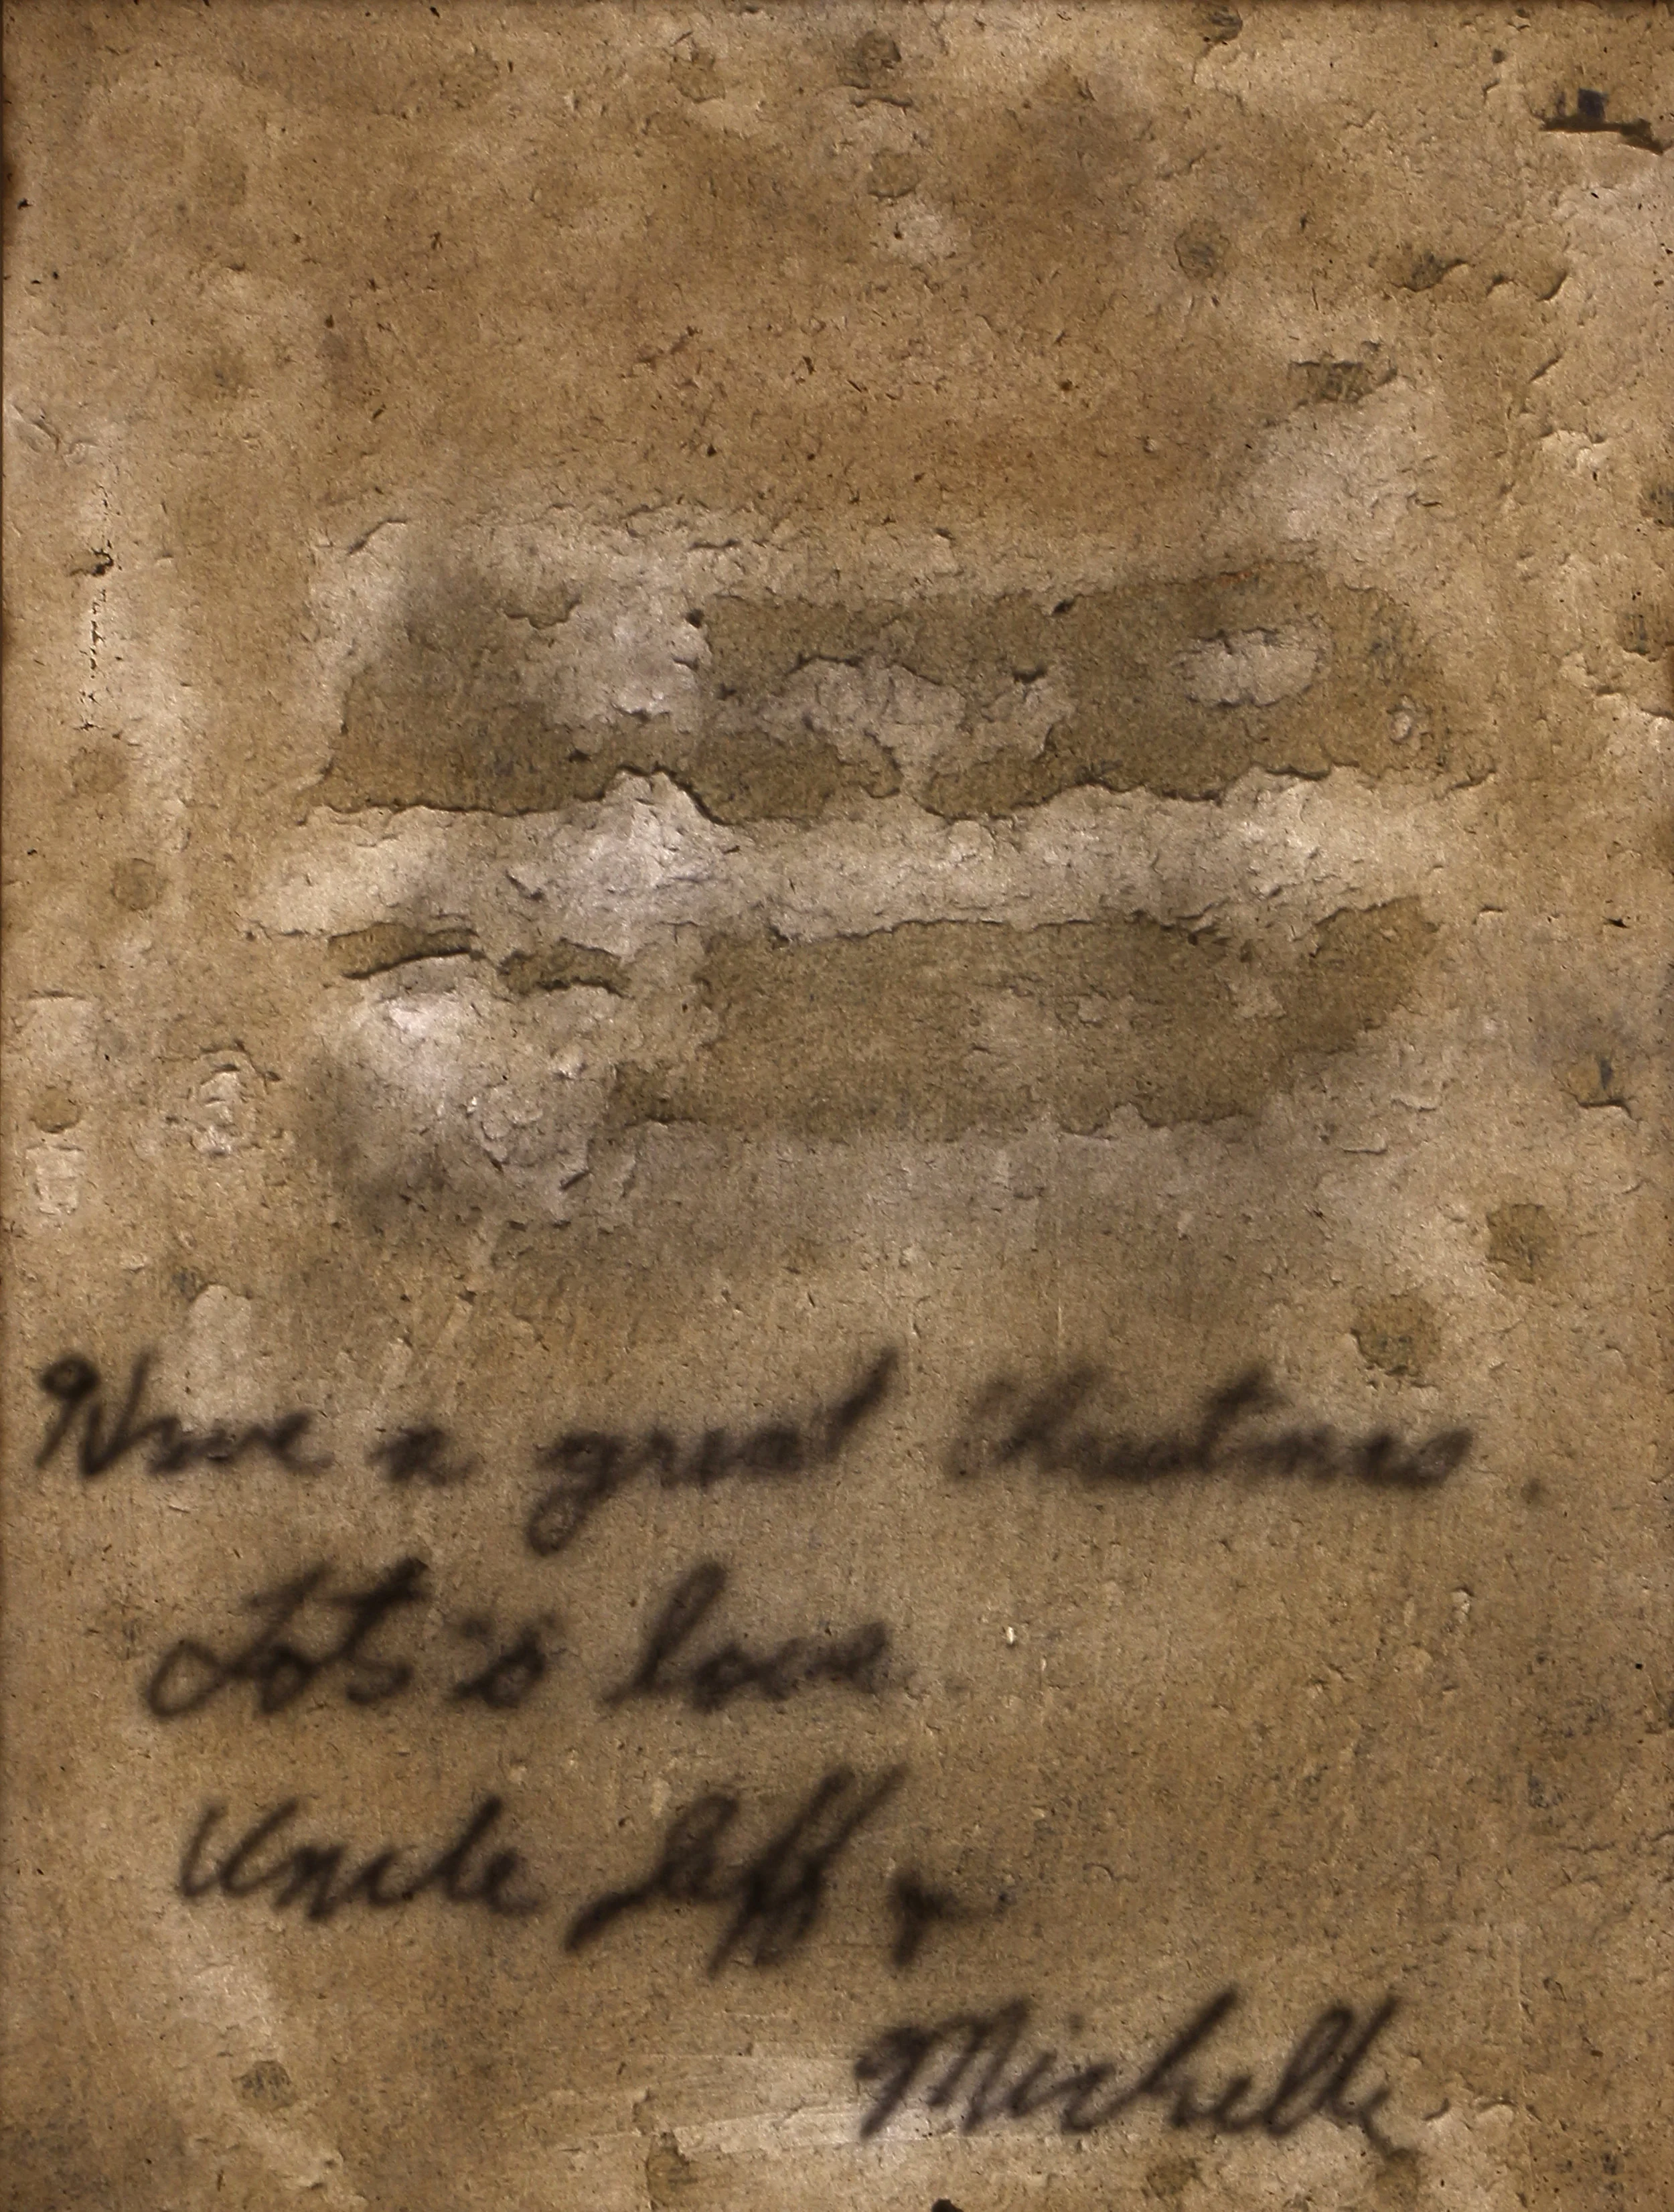 Have a great Christmas.
Lots o' love
Uncle Jeff +
Michelle.